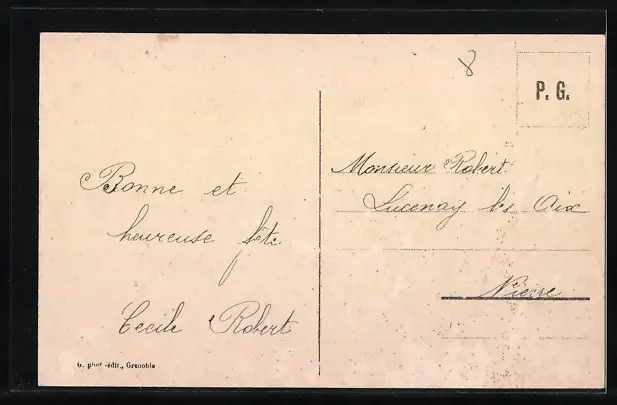 8
P. G.
Bonne et
heureuse fête
Cecile Robert
Monsieur Robert
Lucenay les Aix
Nievre
G. phot.-édit., Grenoble